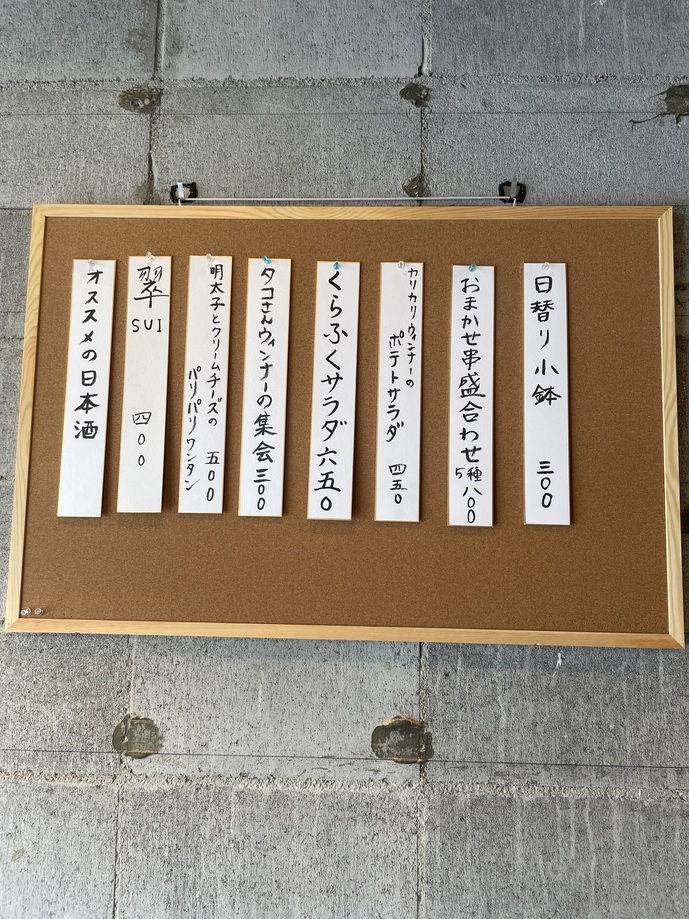 日替り小鉢 三〇〇
おまかせ串盛合わせ
5種 八〇〇
くらふくサラダ 六五〇
カリカリウィンナーの
ポテトサラダ 四五〇
タコさんウィンナーの集会 三〇〇
明太子とクリームチーズの
パリパリワンタン 五〇〇
翠
SUI
四〇〇
オススメの日本酒